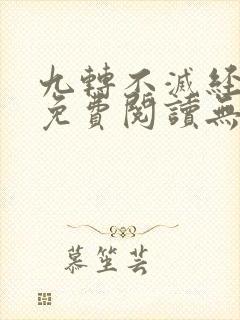 九轉不滅經
免費閱讀無
慕笙芸